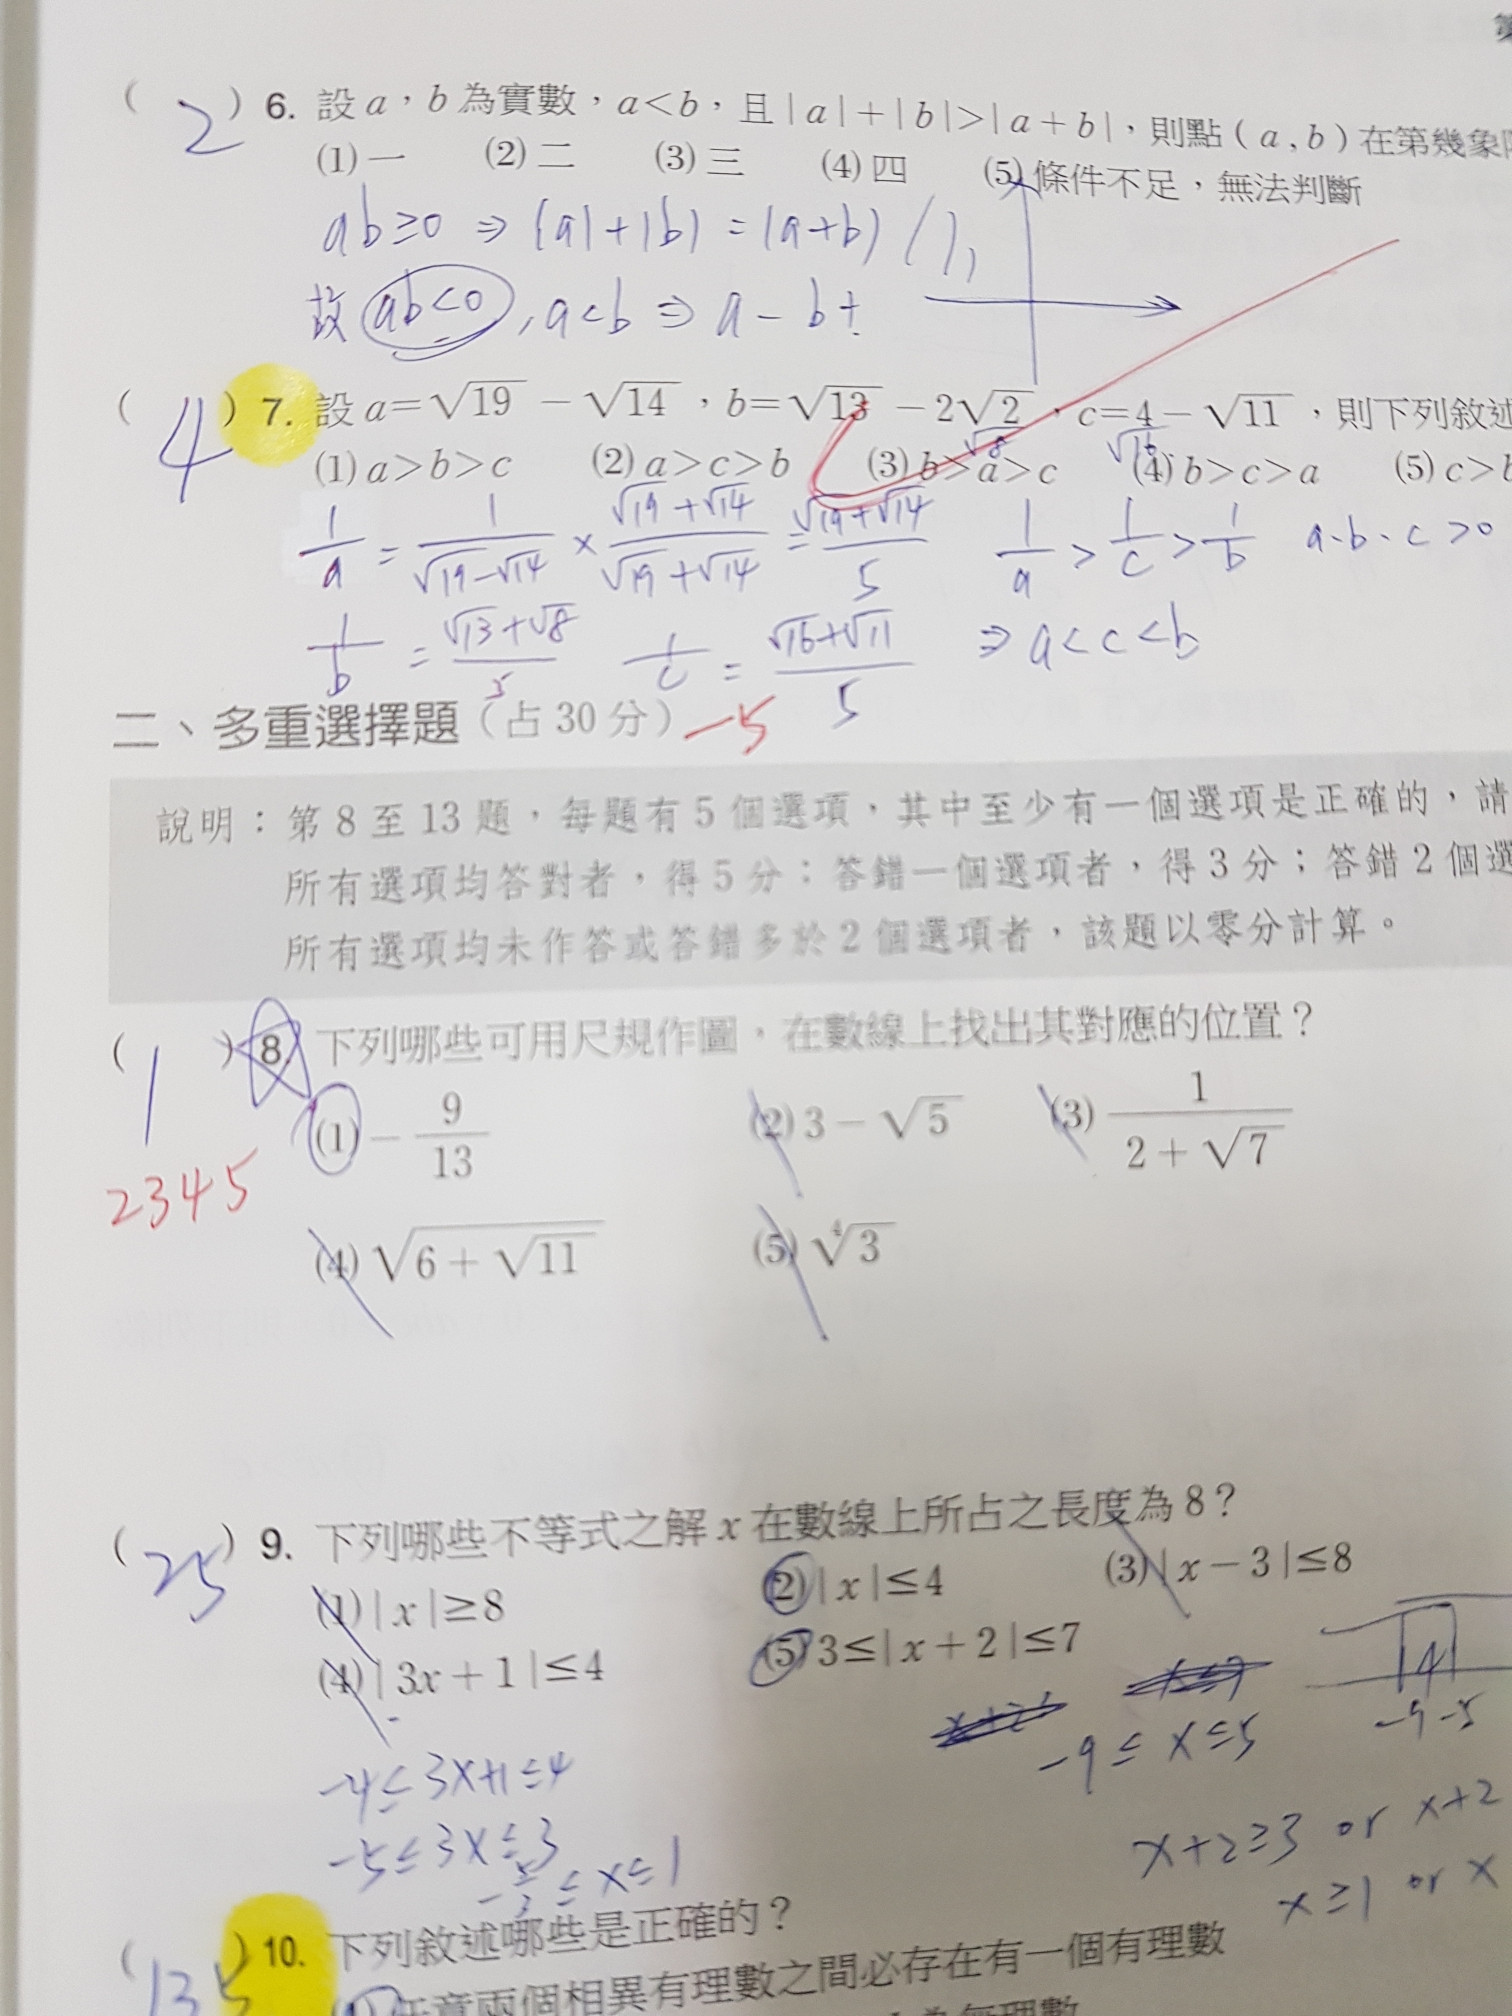 第
( 2 ) 6. 設 a，b 為實數，a<b，且 |a|+|b|>|a+b|，則點 (a,b) 在第幾象
(1) 一 (2) 二 (3) 三 (4) 四 (5) 條件不足，無法判斷
ab≥0 ⇒ |a|+|b| = |a+b|
故 ab<0, a<b ⇒ a- b+
( 4 ) 7. 設 a=√19 - √14，b=√13 - 2√2，c=4-√11，則下列敘述
√8 √16
(1) a>b>c (2) a>c>b (3) b>a>c (4) b>c>a (5) c>b
1/a = 1/(√19-√14) × (√19+√14)/(√19+√14) = (√19+√14)/5 1/a > 1/c > 1/b a.b.c>0
1/b = (√13+√8)/5 1/c = (√16+√11)/5 ⇒ a<c<b
二、多重選擇題（占 30 分） -5
說明：第 8 至 13 題，每題有 5 個選項，其中至少有一個選項是正確的，請
所有選項均答對者，得 5 分；答錯一個選項者，得 3 分；答錯 2 個選
所有選項均未作答或答錯多於 2 個選項者，該題以零分計算。
( 1 ) 8. 下列哪些可用尺規作圖，在數線上找出其對應的位置？
2345
(1) -9/13 (2) 3-√5 (3) 1/(2+√7)
(4) √(6+√11) (5) ∜3
( 25 ) 9. 下列哪些不等式之解 x 在數線上所占之長度為 8？
(1) |x|≥8 (2) |x|≤4 (3) |x-3|≤8
(4) |3x+1|≤4 (5) 3≤|x+2|≤7
4
-9 -5
-9≤x≤5
-4≤3x+1≤4
x+2≥3 or x+2
-5≤3x≤3
x≥1 or x
-5/3≤x≤1
( 135 ) 10. 下列敘述哪些是正確的？
(1) 任意兩個相異有理數之間必存在有一個有理數
為無理數